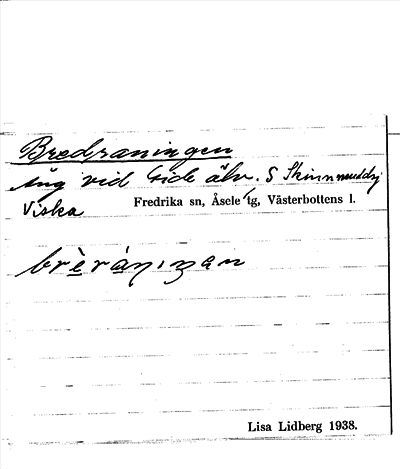 Bredraningen
Äng vid Gide älv. S Skinnmuddsj
Viska Fredrika sn, Åsele tg, Västerbottens l.
Lisa Lidberg 1938.